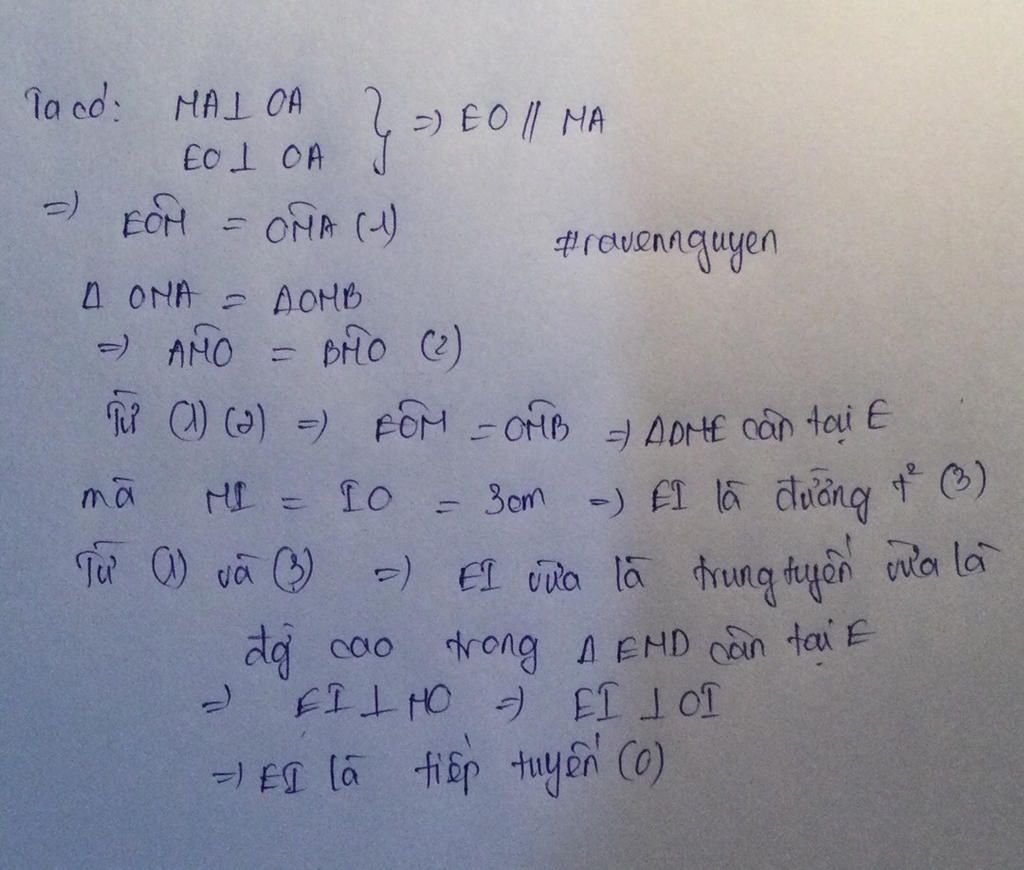 Ta có: MA ⊥ OA
EO ⊥ OA } => EO // MA
=> EÔM = OM̂A (1)
#ravennguyen
Δ OMA = ΔOMB
=> AM̂O = BM̂O (2)
Từ (1) (2) => EÔM = OM̂B => ΔOME cân tại E
mà MI = IO = 3cm => EI là đường t² (3)
Từ (1) và (3) => EI vừa là trung tuyến vừa là
đg̀ cao trong Δ EMO cân tại E
=> EI ⊥ MO => EI ⊥ OI
=> EI là tiếp tuyến (O)